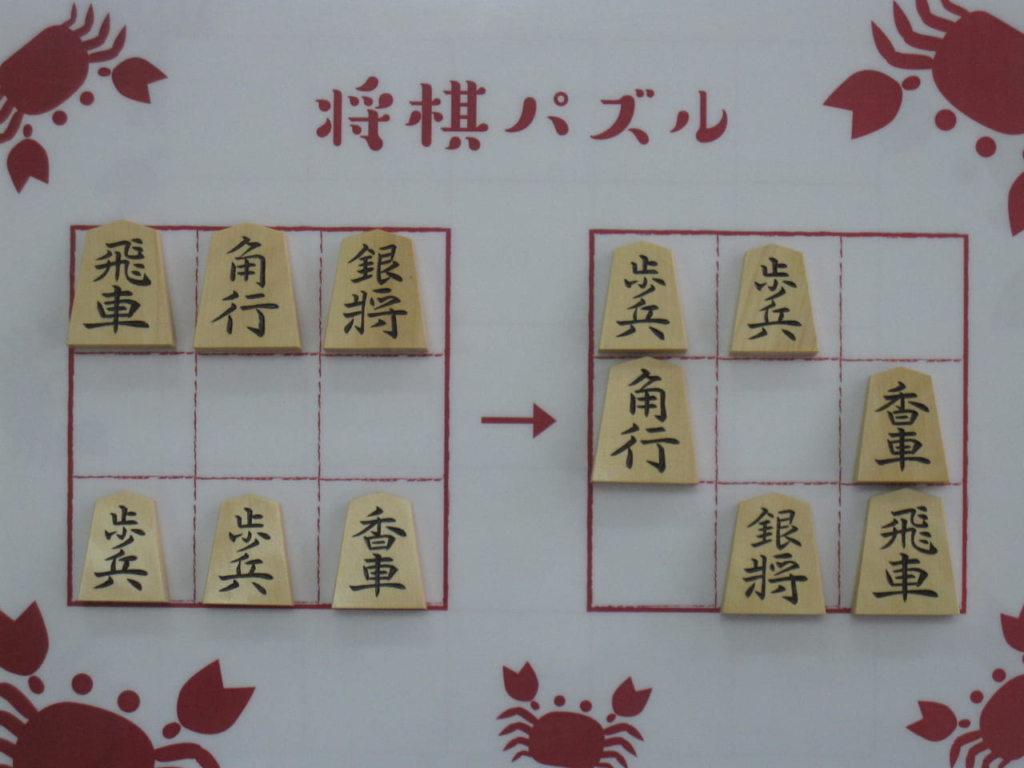 将棋パズル
飛車 角行 銀将 歩兵 歩兵
角行 香車
歩兵 歩兵 香車 銀将 飛車